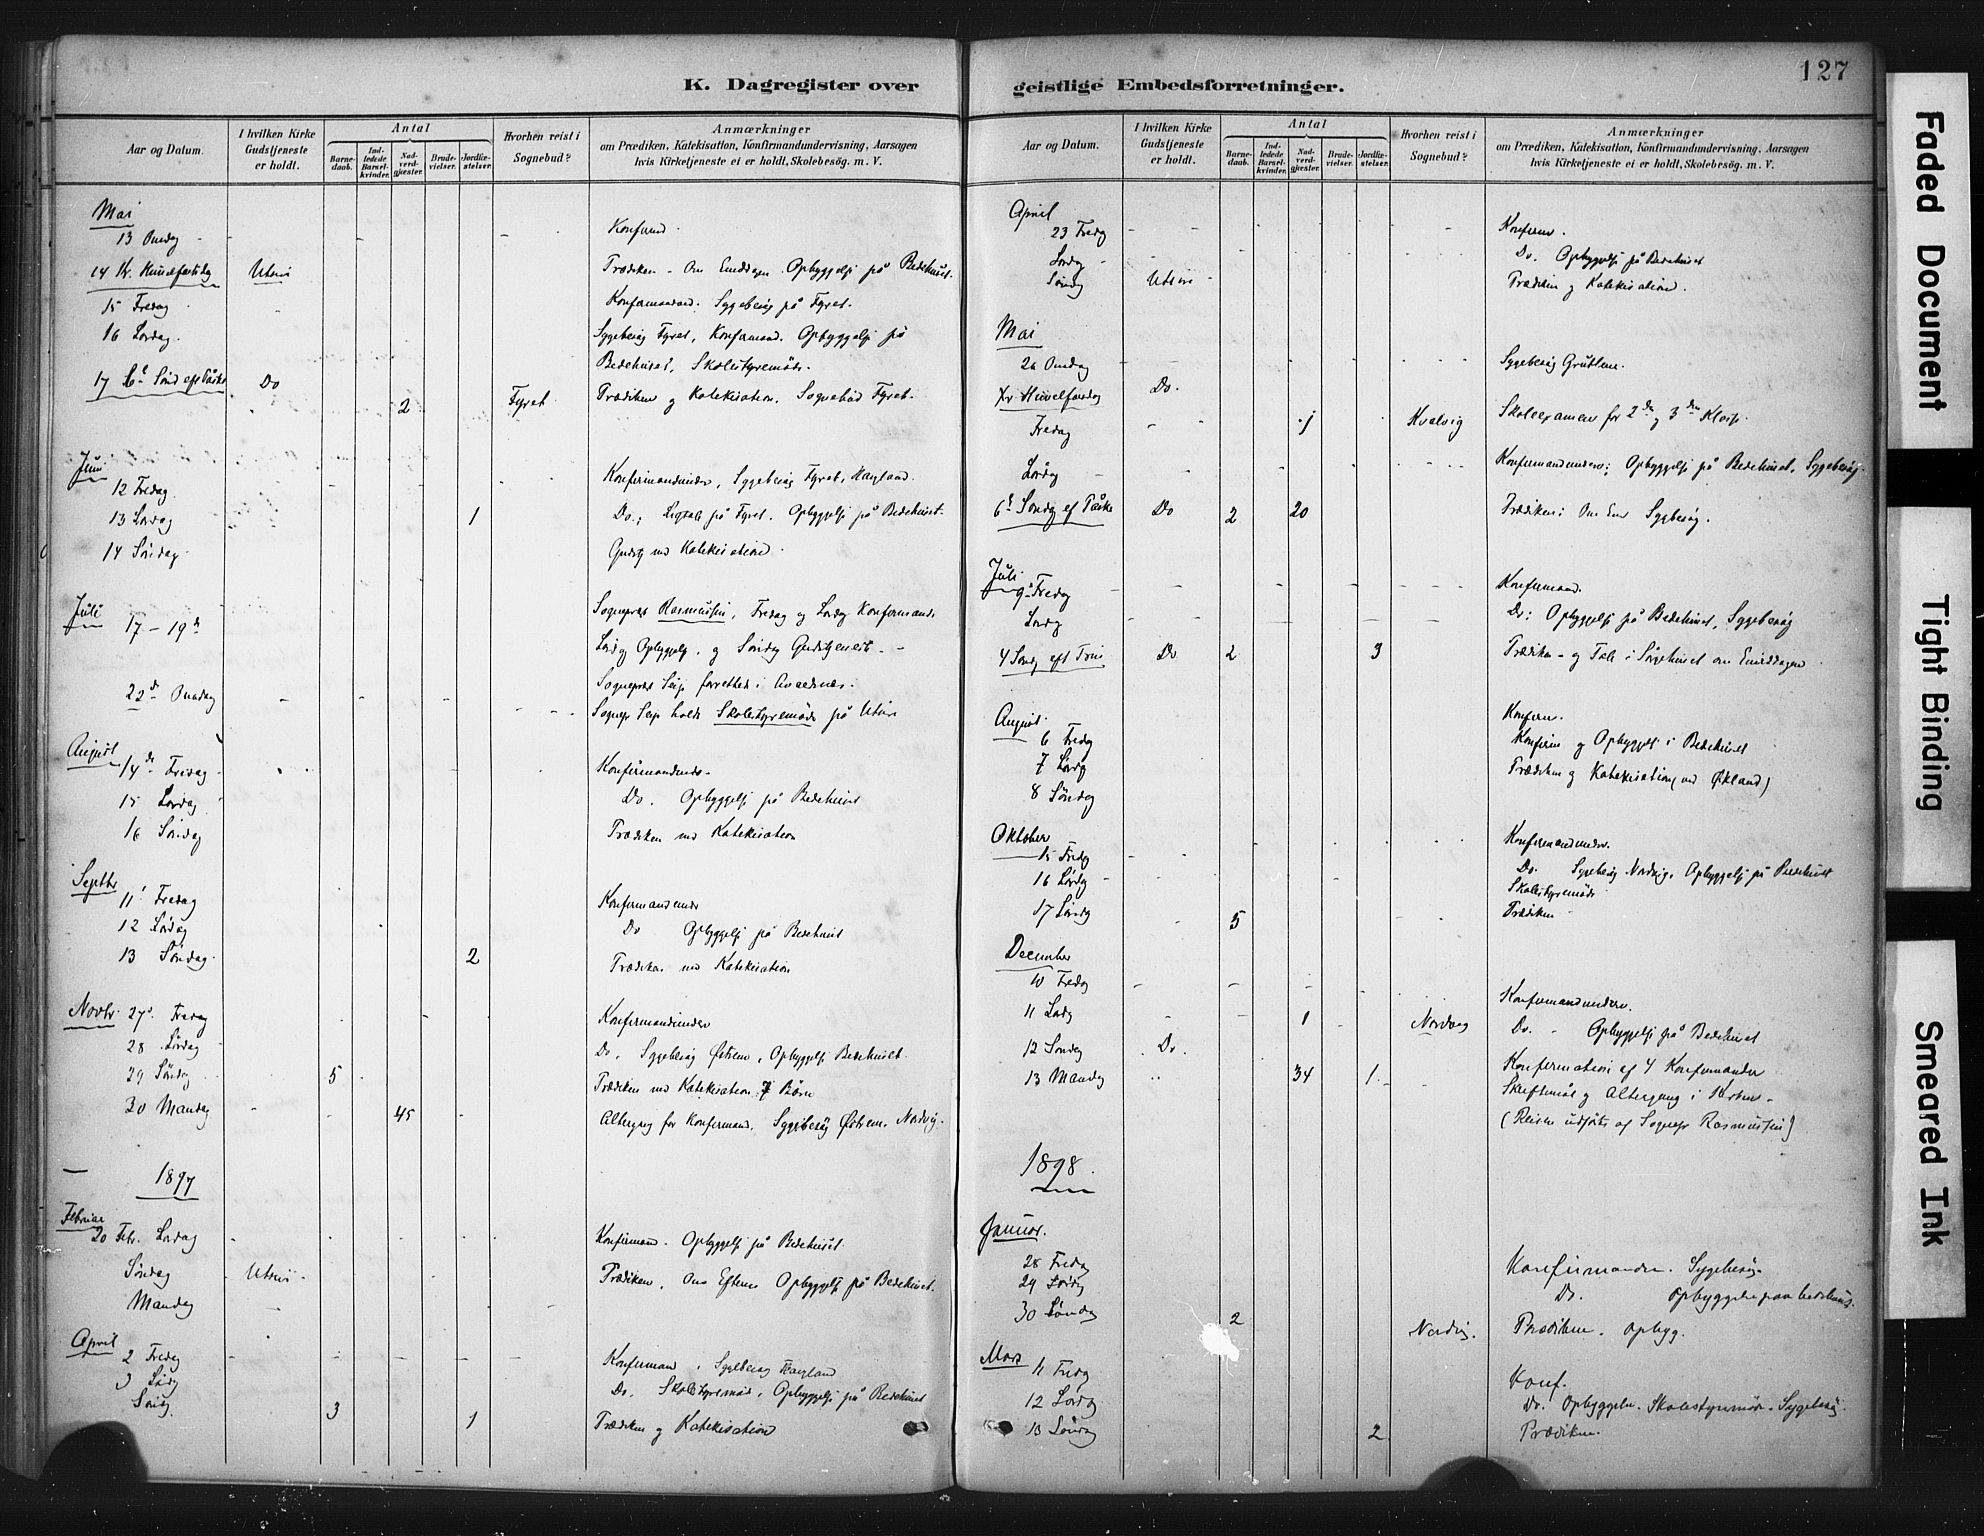 K. Dagregister over
Aar og Datum.
I hvilken Kirke Gudstjeneste er holdt.
Antal
Barnedaab.
Indledede Barselkvinder.
Nadverdgjester.
Brudevielser.
Jordfæstelser.
Hvorhen reist i Sognebud?
Anmærkninger
om Prædiken, Katekisation, Konfirmandundervisning, Aarsagen
hvis Kirketjeneste ei er holdt, Skolebesøg. m. V.
Mai
13 Onsdag
Konfirmd.
14 Kr. Himmelfartsdag Utsire Prædiken - Om Opbyggelse på Bedehuset.
15 Fredag Konfirmand. Sygebesøg på Fyret.
16 Lørdag. Sygebesøg Fyret, Konfirmand. Opbyggelse på
Bedehuset, Skolestyremøde.
17 6te Sønd eft Påske Do 2 Fyret Prædiken og Katekisation. Sognebud Fyret.
Juni
12 Fredag Konfirmandunder, Sygebesøg Fyret, Haugland.
13 Lørdag 1 Do.; Ligtale på Fyret. Opbyggelse på Bedehuset.
14 Søndag Gudstj med Katekisation.
Juli 17-19de Sogneprest Rasmussen, Fredag og Lørdag Konfirmand
Lørdag Opbyggelse. og Søndag Gudstjeneste.
22de Onsdag Sogneprest Seip
Sognepr Seip holdt Skolestyremøde på Utsire
August 14de Fredag Konfirmandund.
15 Lørdag Do. Opbyggelse på Bedehuset
16 Søndag Prædiken med Katekisation
Septbr 11 Fredag Konfirmandund
12 Lørdag Do Opbyggelse på Bedehuset
13 Søndag 2 Prædiken med Katekisation
Novbr. 27de Fredag Konfirmandunder
28 Lørdag Do. Sygebesøg Østrem, Opbyggelse Bedehuset.
29 Søndag 5 Prædiken med Katekisation 7 Børn
30 Mandag 45 Altergang for Konfirmand. Sygebesøg Østrem, Nordvig.
1897
Februar
20 Febr. Lørdag Konfirmand. Opbyggelse på Bedehuset
Søndag Utsire Prædiken, Om Efterm Opbyggelse på Bedehuset.
Mandag
April
2 Fredag Konfirmand, Sygebesøg Haugland
3 Lørdg Do. Skolestyremøde, Opbyggelse på Bedehuset
Søndg. 3 1 Prædiken og Katekisation
127
geistlige Embedsforretninger.
Aar og Datum.
I hvilken Kirke Gudstjeneste er holdt.
Antal
Barnedaab.
Indledede Barselkvinder.
Nadverdgjester.
Brudevielser.
Jordfæstelser.
Hvorhen reist i Sognebud?
Anmærkninger
om Prædiken, Katekisation, Konfirmandundervisning, Aarsagen
hvis Kirketjeneste ei er holdt, Skolebesøg. m. V.
April
23 Fredag Konfirm.
Lørdg Do. Opbyggelse på Bedehuset
Søndg Utsire Prædiken og Katekisation.
Mai
26 Onsdag Sygebesøg
Kr Himmelfartsdag Do.
Fredag 1 Kvalvig Skoleexamen for 2den og 3die Klasse.
Lørdag Konfirmandunderv; Opbyggelse på Bedehuset, Sygebesøg.
6te Søndg ef Påske Do 2 20 Prædiken; Om Sygebesøg.
Juli
9de Fredag Konfirmand.
Lørdg Do; Opbyggelse på Bedehuset, Sygebesøg
4 Sønd eft Trin Do 2 3 Prædiken - og Tale i Sørgehuset om Emiddagen
August.
6 Fredag Konfirm.
7 Lørdg Konfirm og Opbyggelse i Bedehuset
8 Søndag Prædiken og Katekisation (ved Økland)
Oktober
15 Fredg Konfirmandunder.
16 Lørdg Do. Sygebesøg Nordvig, Opbyggelse på Bedehuset
Skolestyremøde
17 Søndg 5 Prædiken
December
10 Fredag Konfirmandunderv.
11 Lørdg 1 Nordvag Do. Opbyggelse på Bedehuset
12 Søndag Do. Konfirmation af 4 Konfirmander
13 Mandag 34 1 Skriftemål og Altergang i Kirken -
(Reisen udført af Sognepr Rasmussen)
1898.
Januar.
28 Fredag Konfirmander. Sygebesøg.
29 Lørdg Do. Opbyggelse paa bedehus.
30 Søndag 2 Nordvig. Prædiken. Opbyg.
Mars 11 Fredg Konf.
12 Lørdg Do. Opbyggelse. Skolestyremøde. Sygebesøg.
13 Søndag 2 Prædiken.
Faded Document
Tight Binding
Smeared Ink